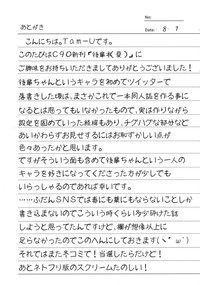 No:
Date: 8・7
あとがき
こんにちは。Tam-Uです。
このたびはC90新刊『後輩状(夏)』に
ご興味をお持ちいただきましてありがとうございました!
後輩ちゃんというキャラを初めてツイッターで
落書きした頃は、まさかこれで一本同人誌を作る事に
なるとは思ってもいなかったもので、実は作りながら
設定を固めていった結構もあり、チグハグな部分など
あいかわらずお見せするにはお恥ずかしい点が
色々あったかと思います。
ですがそういう面も含めて後輩ちゃんという一人の
キャラを好きになってくださった方が少しでも
いらっしゃるのであれば幸いです。
……ふだんSNSでは毒にも薬にもならないことしか
書き込まないのでこういう時くらい多少砕けた話
しようと思ってたんですけど、欄が想像以上に
足らなかったのでこのへんにしておきます(ヽ´ω`)
それではまた冬コミで!当選したらだけど!
あとネトフリ版のスクリームたのしい!